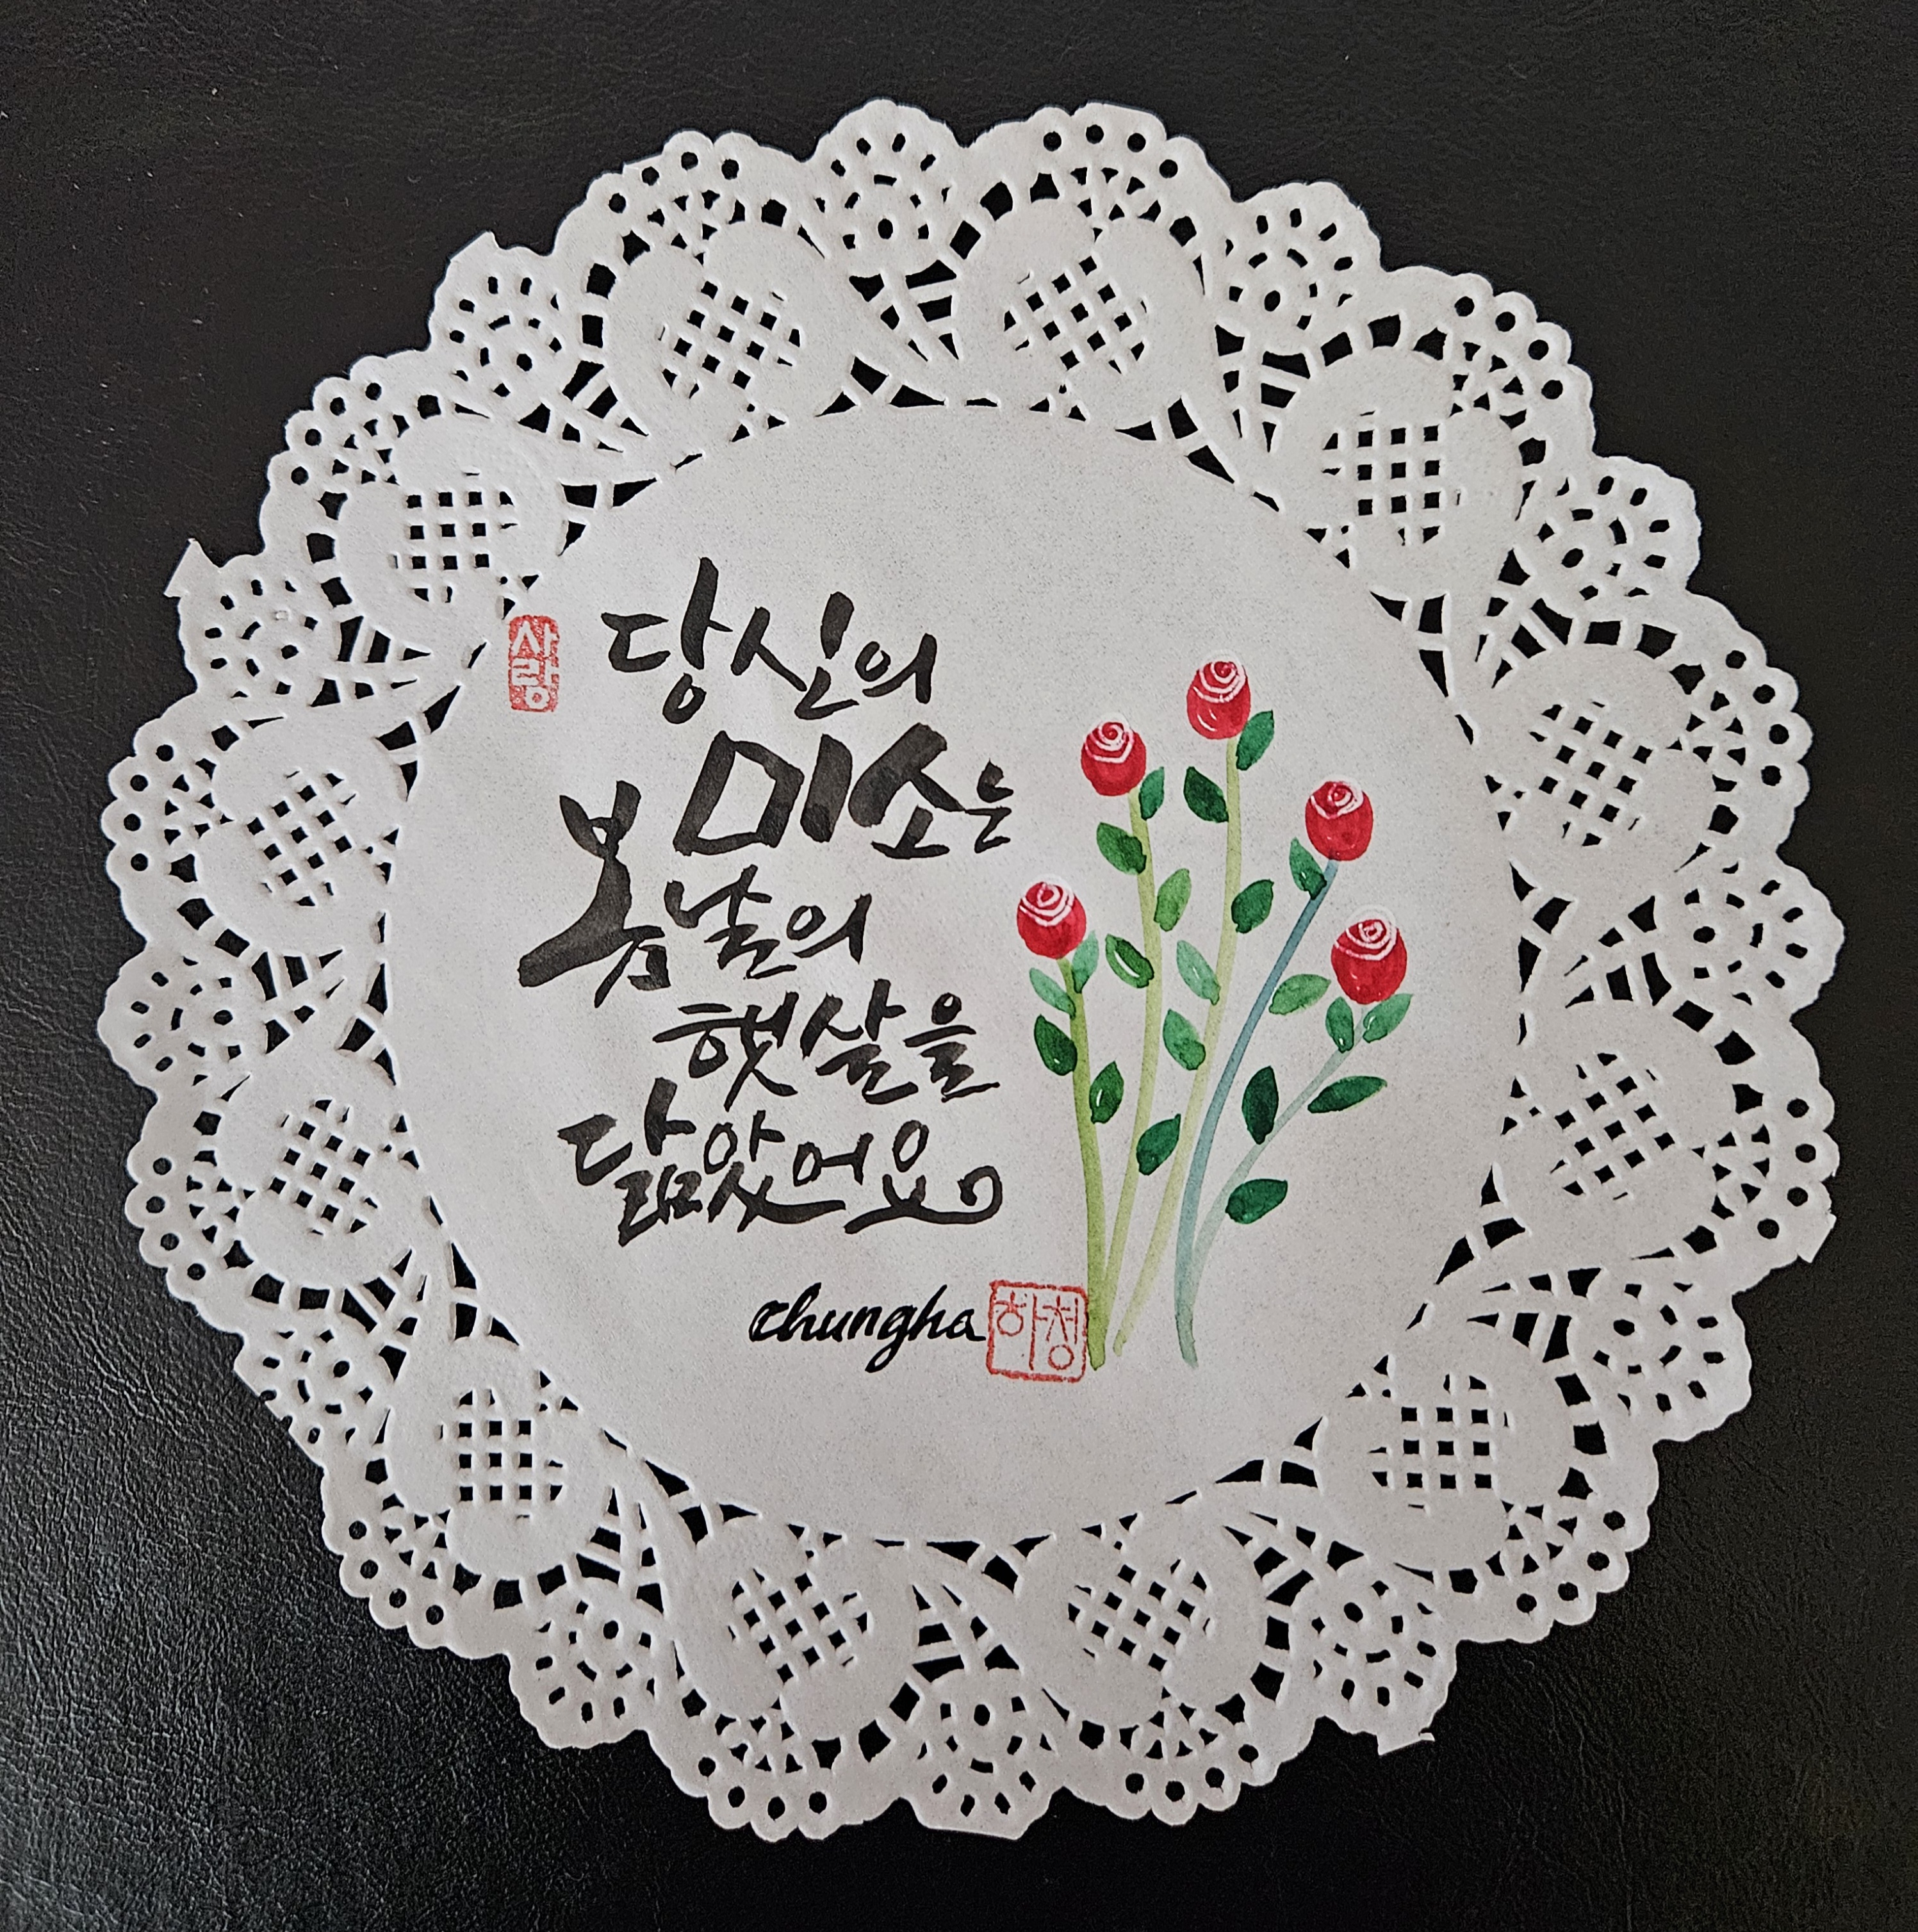 사랑
당신의
미소는
봄날의
햇살을
닮았어요
chungha
하청